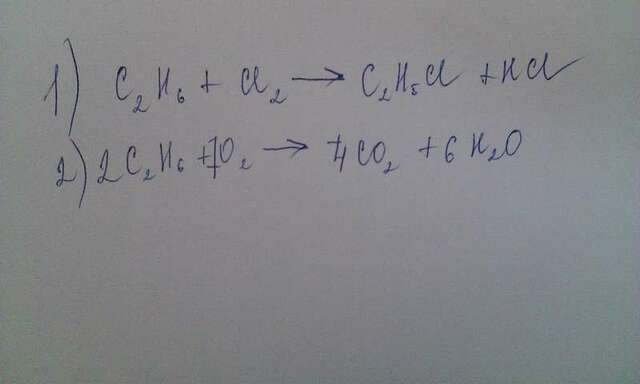 1) C₂H₆ + Cl₂ → C₂H₅Cl + HCl
2) 2C₂H₆ + 7O₂ → 4CO₂ + 6H₂O